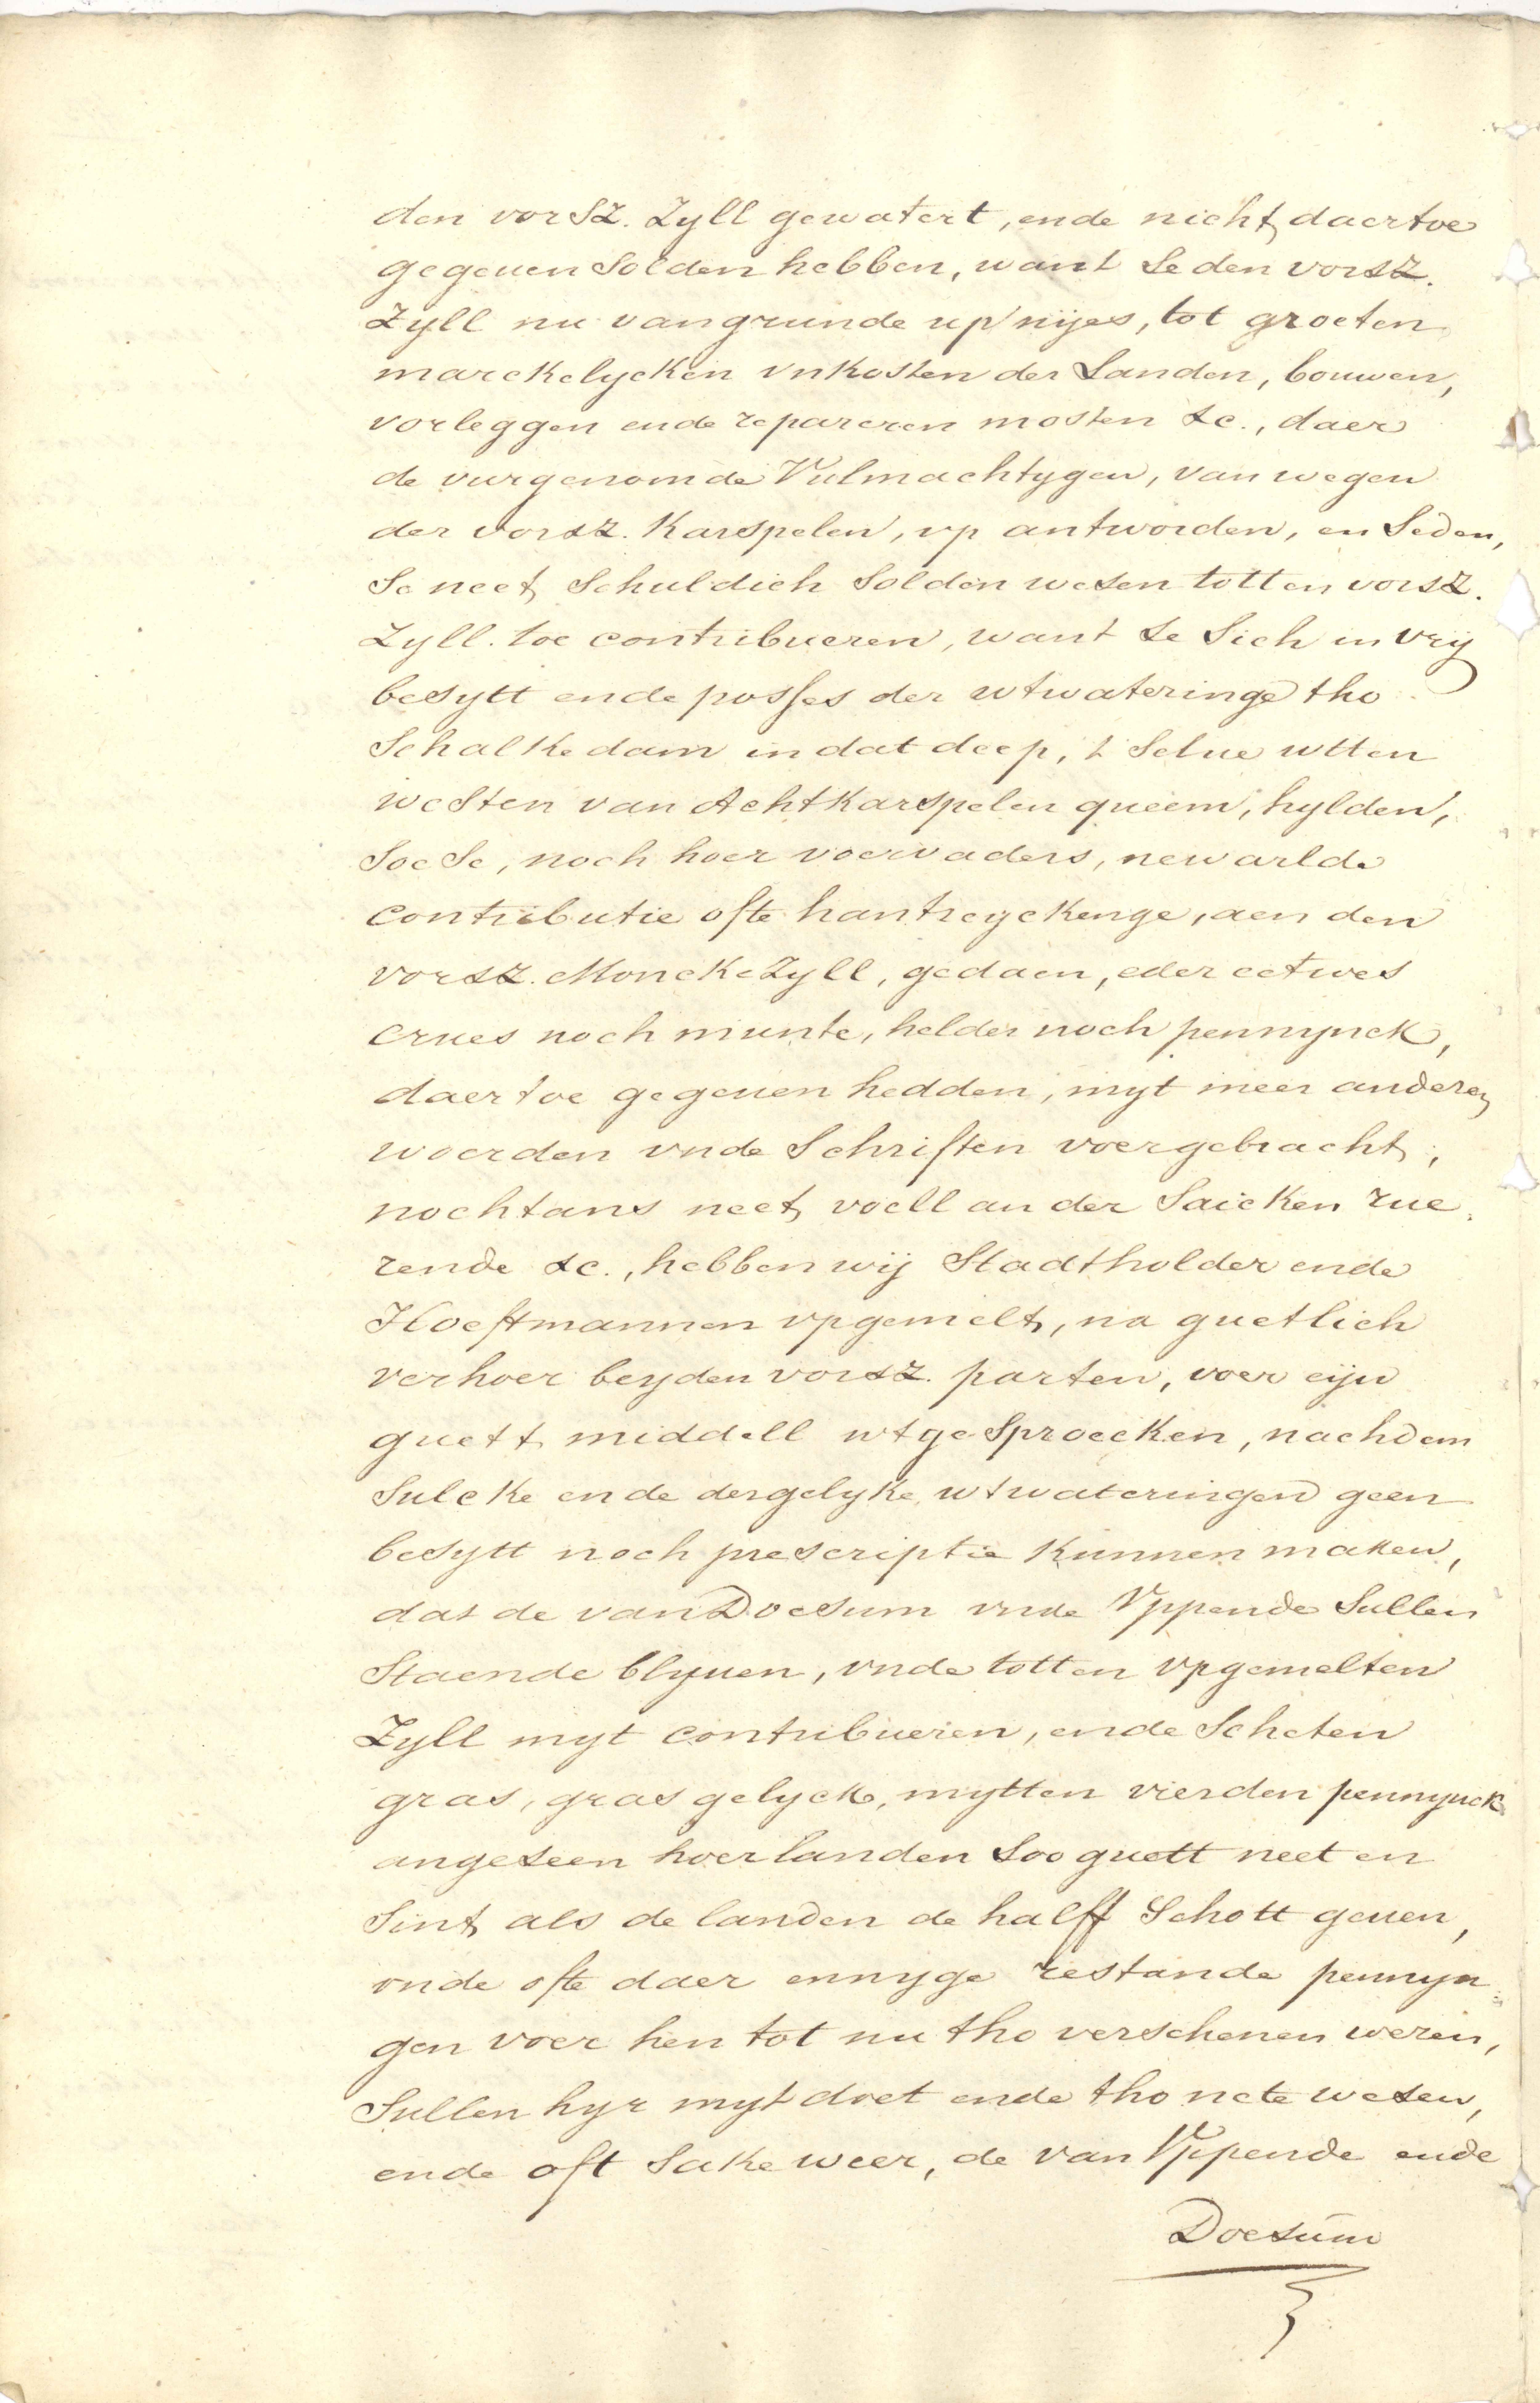 den vorsz. Zyll gewatert, ende nicht daertoe
gegeuen solden hebben, want se den vorsz.
Zyll nu van grunde up nyes, tot groeten
marckelycken vnkosten der Landen, bouwen,
vorleggen ende repareren mosten &c., daer
de vurgenomde Vulmachtygen, van wegen
der vorsz. Karspelen, vp antworden, en seden,
se neet schuldich solden wesen totten vorsz.
Zyll toe contribueren, want se sich in vrij
besytt ende posses der utwateringe tho
Schalkedam in dat deep, t selue utten
westen van Achtkarspelen queem, hylden,
soe se, noch hoer voervaders, newarlde
contributie ofte hantreyckenge, aen den
vorsz. Moncke Zyll, gedaen, eder eetwes
crues noch munte, helder noch pennynck,
daertoe gegeuen hedden, myt meer anderen
woerden vnde Schriften voergebracht,
nochtans neet voell an der Saicken rue-
rende &c., hebben wij Stadtholder ende
Hoeftmannen vpgemelt, na guetlich
verhoer beyden vorsz. parten, voer eijn
guett middell utgesproecken, nachdem
sulcke ende dergelyke utwateringen geen
besytt noch prescriptie kunnen maken,
dat de van Doesum vnde Vppende sullen
staende blyuen, vnde totten vpgemelten
Zyll myt contribueren, ende scheten
gras, gras gelyck, mytten vierden pennynck
angeseen hoer landen soo guett neet en
sint als de landen de halff schott geuen,
vnde ofte daer ennyge restande pennyn-
gen voer hen tot nu tho verschenen weren,
sullen hyr myt doet ende tho nete wesen,
ende oft sake weer, de van Vppende ende
Doesum